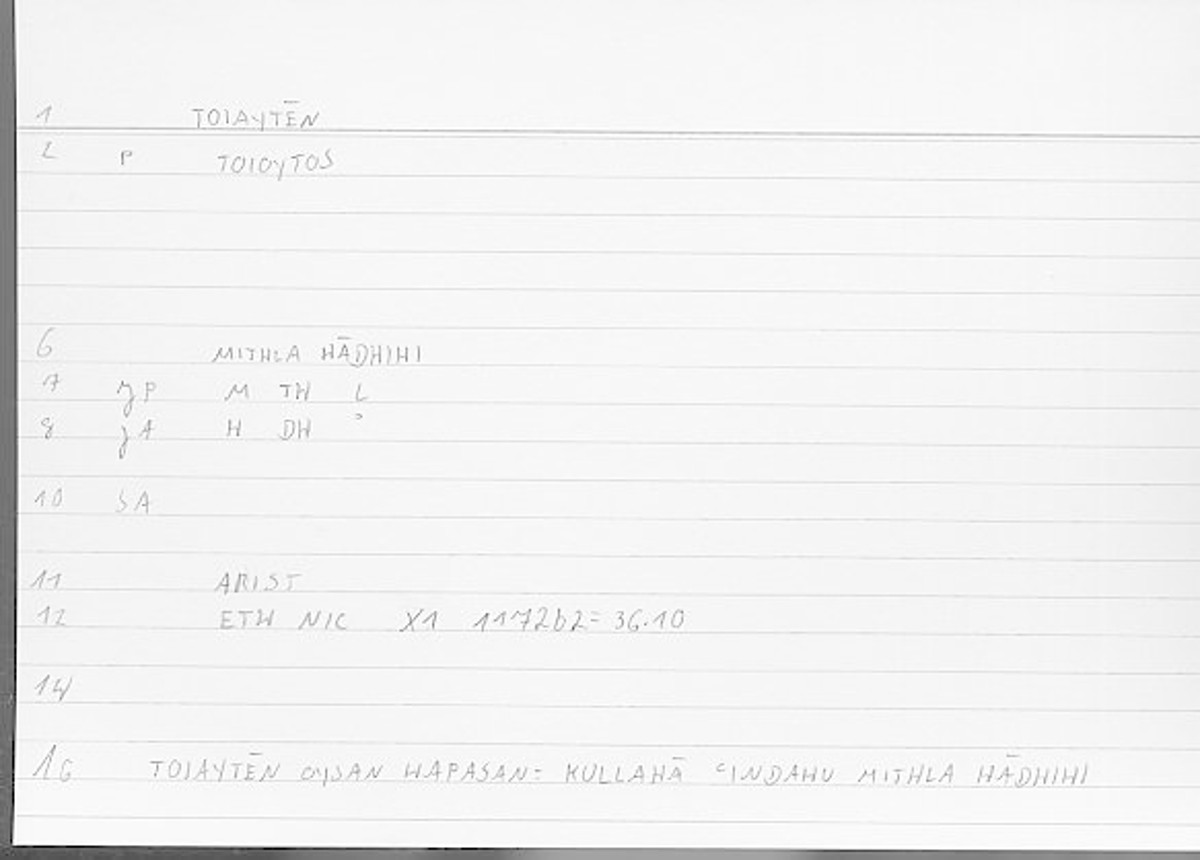 1 TOIAYTĒN
2 P TOIOYTOS
6 MITHLA HĀDHIHI
7 P M TH L
8 A H DH ʾ
10 SA
11 ARIST
12 ETH NIC X1 1172b2= 36.10
14
16 TOIAYTĒN OYSAN HAPASAN= KULLAHĀ ʿINDAHU MITHLA HĀDHIHI